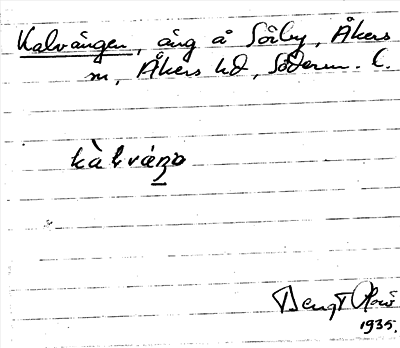 Kalvängen, äng å Sörby, Åkers
sn, Åkers hd, Söderm. l.
kàlvä́ŋa
Bengt
1935.